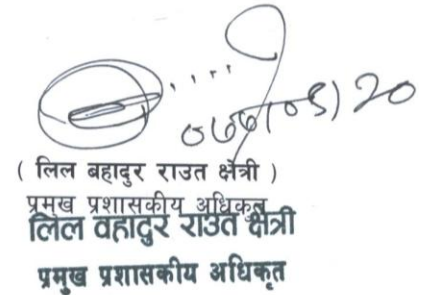 ( लिल बहादुर राउत क्षेत्री )
प्रमुख प्रशासकीय अधिकृत
लिल वहादुर राउत क्षेत्री
प्रमुख प्रशासकीय अधिकृत